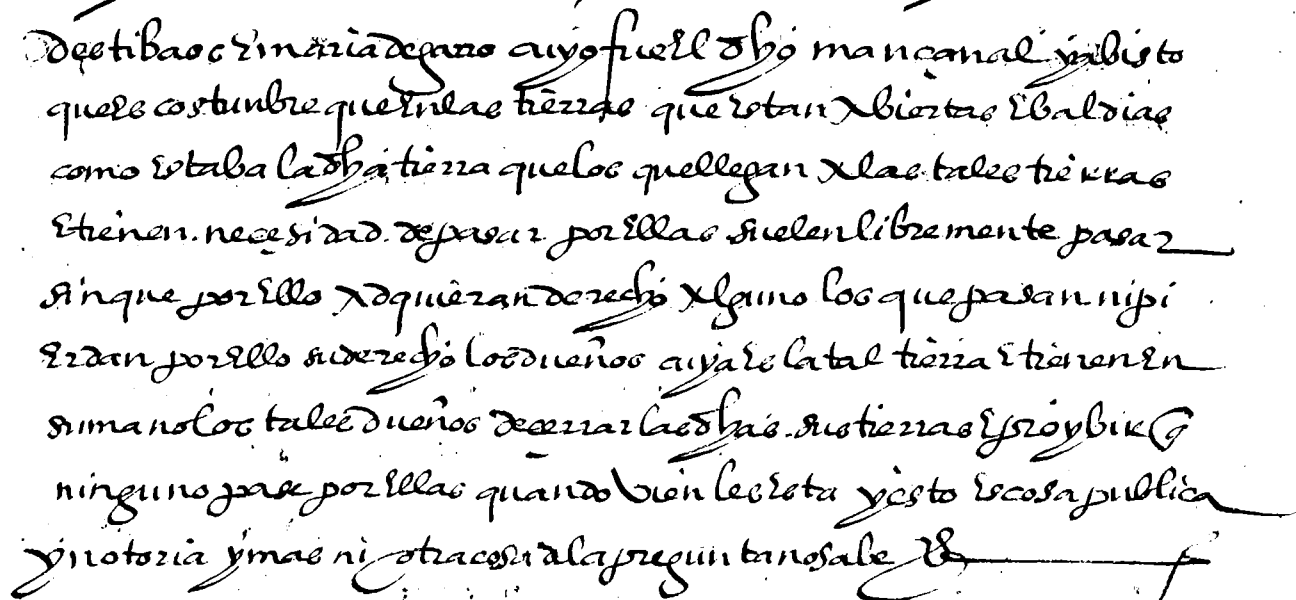 destibaos e maria de garro cuyo fue el dho mançanal y a bisto
ques costunbre que en las tierras que estan abiertas e baldias
como estaba la dha tierra que los que llegan a las tales tierras
e tienen neçesidad de pasar por ellas suelen libremente pasar
sin que por ello adquieran derecho alguno los que pasan ni pi
erdan por ello su derecho los dueños cuya es la tal tierra e tienen en
su mano los tales dueños de çerrar las dhas sus tierras e proybir q
ninguno pase por ellas quando vien les esta y esto es cosa publica
y notoria y mas ni otra cosa a la pregunta no sabe